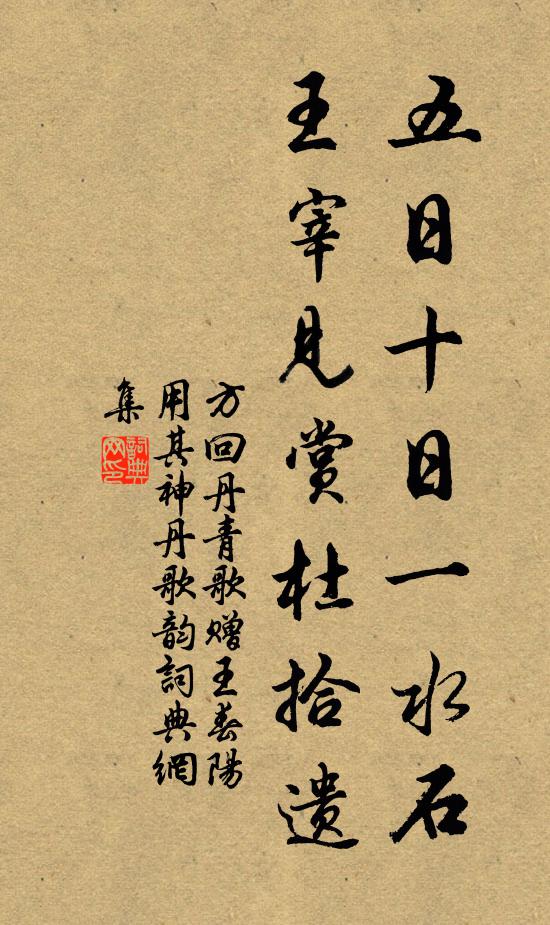 五日十日一水石
王宰見賞杜拾遺
方回丹青歌贈王春陽
用其神丹歌韵詞典網
集
詞典网印